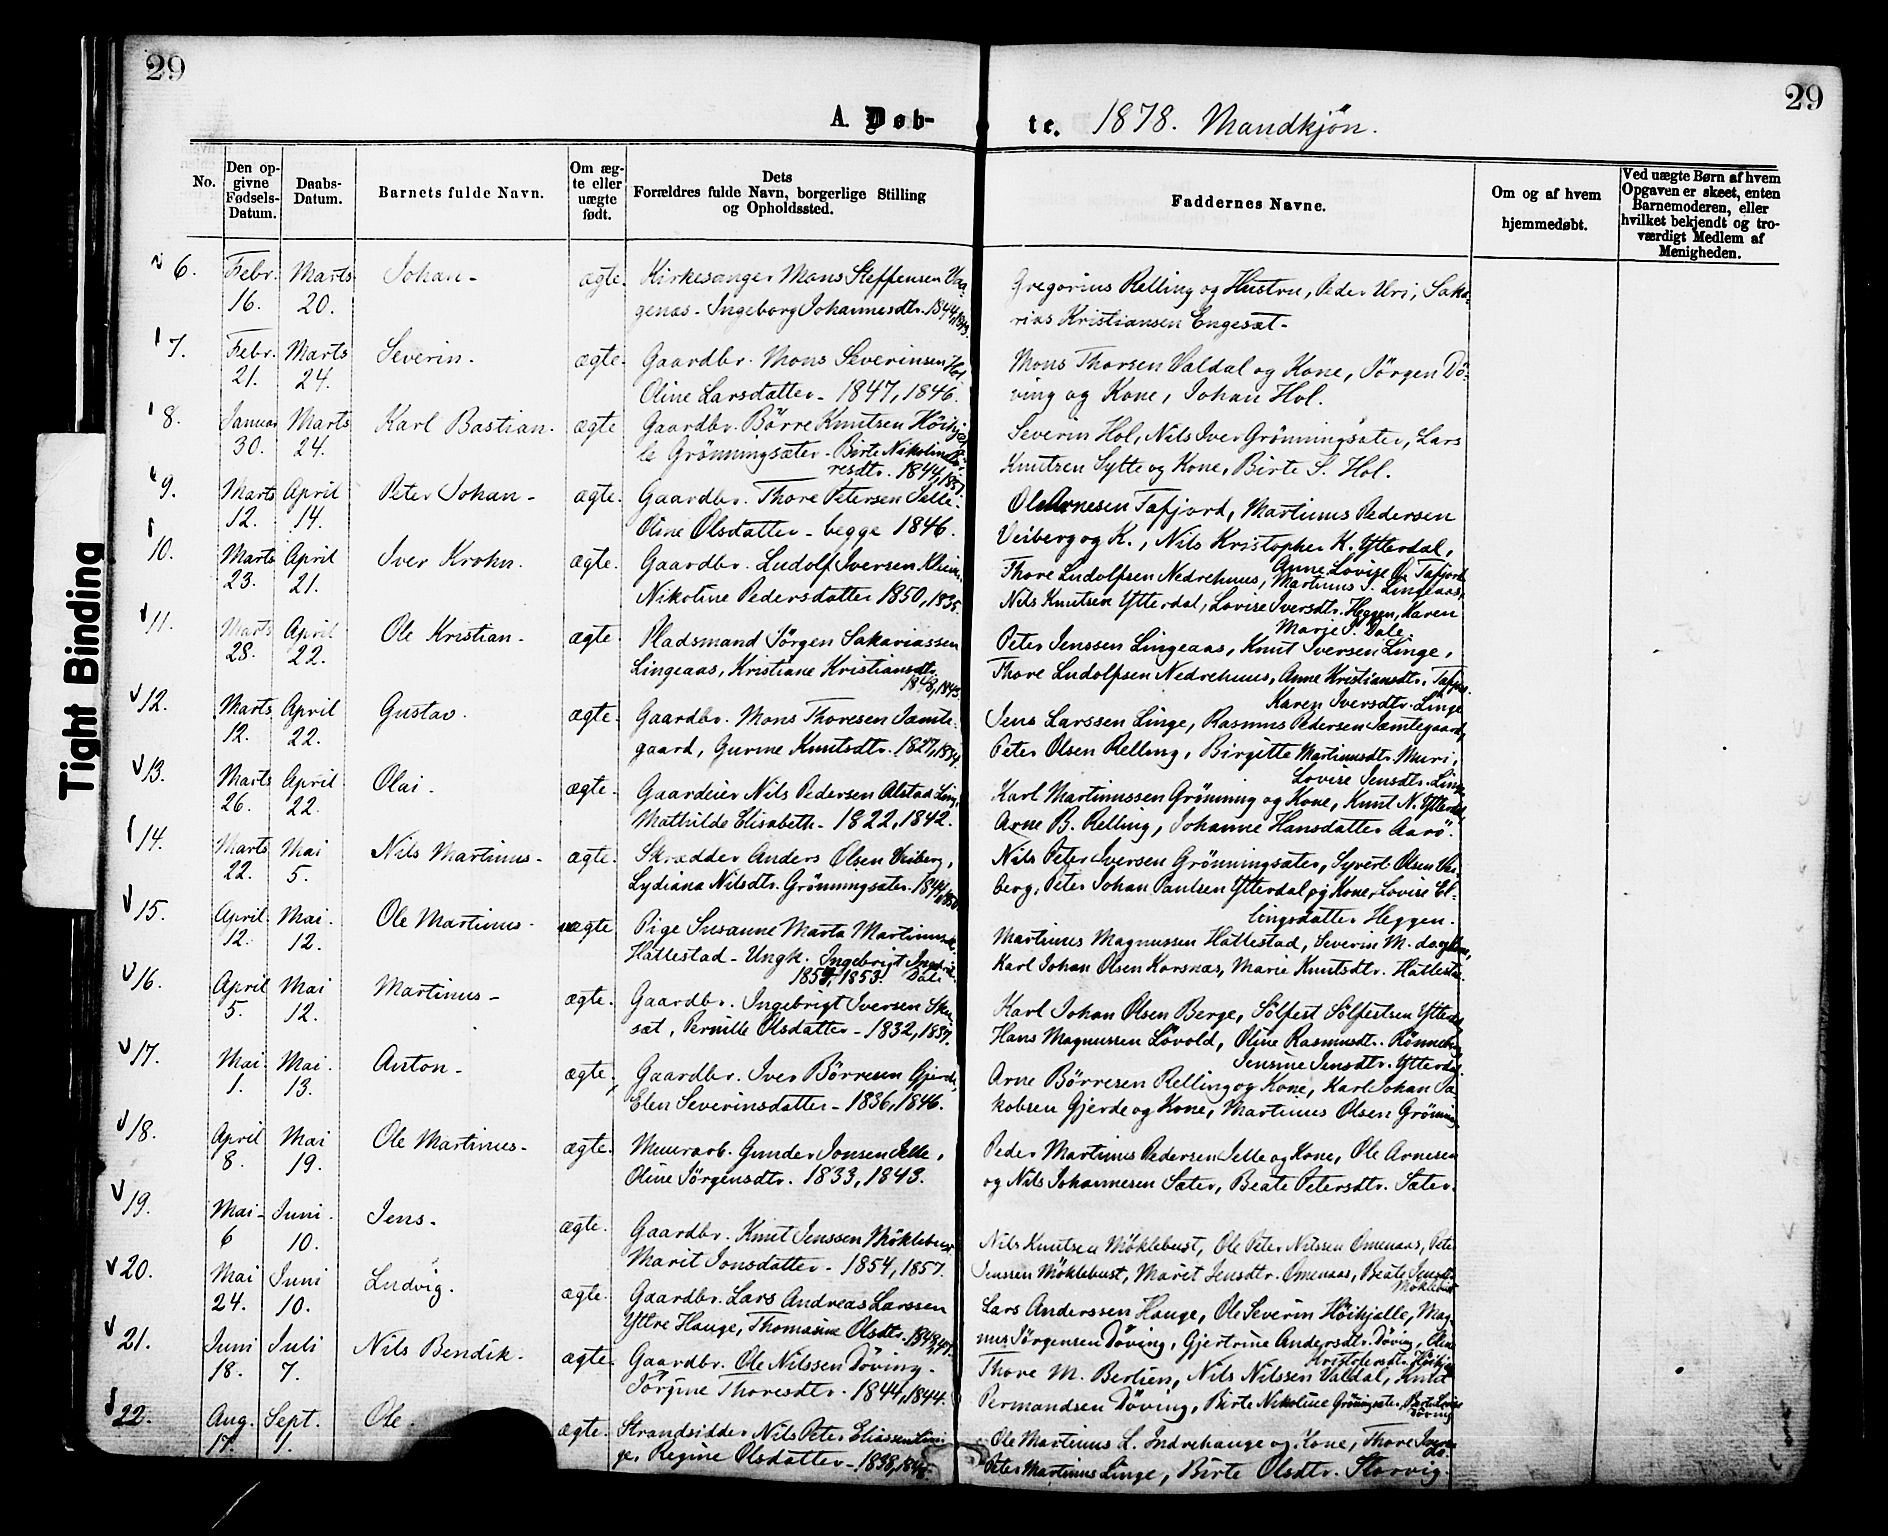 29
29
A. Døb- te. 1878. Mandkjön.
Tight Binding
No.
Den opgivne Fødsels-Datum.
Daabs-Datum.
Barnets fulde Navn.
Om ægte eller uægte født.
Dets Forældres fulde Navn, borgerlige Stilling og Opholdssted.
Faddernes Navne.
Om og af hvem hjemmedøbt.
Ved uægte Børn af hvem Opgaven er skeet, enten Barnemoderen, eller hvilket bekjendt og troværdigt Medlem af Menigheden.
6. Febr. 16. Marts 20. Johan - ægte. Kirkesanger Mons Steffensen Vaa-
genæs - Ingeborg Johannesdtr. 1844,
Gregorius Relling og Hustru, Peder Uri, Saka-
rias Kristiansen Engesæt -
7. Febr. 21. Marts 24. Severin. ægte. Gaardbr. Mons Severinsen Hol
Oline Larsdatter - 1847, 1846.
Mons Thorsen Valdal og Kone, Jörgen Dö-
ving og Kone, Johan Hol.
8. Januar 30. Marts 24. Karl Bastian. ægte Gaardbr. Börre Knutsen Höihjel-
le Grönningsæter - Birte Nikoline
resdtr. 1844, 1851.
Severin Hol, Nils Iver Grönningsæter, Lars
Knutsen Sylte og Kone, Birte S. Hol.
9. Marts 12. April 14. Peter Johan - ægte. Gaardbr. Thore Petersen Selle.
Oline Olsdatter - begge 1846.
Ole Arnesen Tafjord, Martinus Pedersen
Veiberg og K., Nils Kristopher K. Ytterdal,
Anne Lovise O. Tafjord
10. Marts 23. April 21. Iver Krohn. ægte. Gaardbr. Ludolf Iversen
Nikoline Pedersdatter 1850, 1835.
Thore Ludolfsen Nedrehuus, Martinus S. Lingeaas,
Nils Knutsen Ytterdal, Lovise Iversdtr. Heggen, Karen
Marie P. Dale.
11. Marts 28. April 22. Ole Kristian - ægte. Pladsmand Jörgen Sakariassen
Lingeaas, Kristiane Kristiansdtr.
1848, 1845.
Peter Jenssen Lingeaas, Knut Iversen Linge,
Thore Ludolfsen Nedrehuus, Anne Kristiansdtr. Tafjord.
Karen Iversdtr. Linge
12. Marts 12. April 22. Gustav. ægte. Gaardbr. Mons Thoresen Jamte-
gaard, Gurine Knutsdtr. 1827, 1834.
Jens Larssen Linge, Rasmus Pedersen Jamtegaard,
Peter Olsen Relling, Birgitte Martinusdtr. Muri,
Lovise Jensdtr. Linge
13. Marts 26. April 22. Olai. ægte. Gaardeier Nils Pedersen Alstad Linge
Mathilde Elisabeth - 1822, 1842.
Karl Martinussen Gröning og Kone, Knut N. Ytterdal,
Arne B. Relling, Johanne Hansdatter Aarö.
14. Marts 22. Mai 5. Nils Martinus - ægte. Skrædder Anders Olsen Veiberg,
Lydiana Nilsdtr. Grönningsæter. 1844, 1850
Nils Peter Iversen Grönningsæter, Syvert Olsen Vei-
berg, Peter Johan Paulsen Ytterdal og Kone, Lovise El-
lingsdatter Heggen.
15. April 12. Mai 12. Ole Martinus - uægte Pige Susanne Marta Martinusdtr.
Hattestad - Ungk. Ingebrigt
1854, 1853. Dale
Martinus Magnussen Hattestad, Severin M. do og Kone,
Karl Johan Olsen Korsnæs, Marie Knutsdtr. Hattestad.
16. April 5. Mai 12. Martinus - ægte. Gaardbr. Ingebrigt Iversen
sæt, Pernille Olsdatter - 1832, 1837.
Karl Johan Olsen Berge, Sölfest Sölfestsen Ytterdal,
Hans Magnussen Lövold, Oline Rasmusdtr. Rönneberg
Jensine Jensdtr. Ytterdal
17. Mai 1. Mai 13. Anton - ægte. Gaardbr. Iver Börresen Gjerde,
Elen Severinsdatter - 1836, 1846.
Arne Börresen Relling og Kone, Karl Johan Ja-
kobsen Gjerde og Kone, Martinus Olsen Gröning
18. April 8. Mai 19. Ole Martinus - ægte. Muurarb. Gunder Jonsen Selle,
Oline Jörgensdtr. 1833, 1843.
Peder Martinus Pedersen Selle og Kone, Ole Arnesen
og Nils Johannesen Sæter, Beate Petersdtr. Sæter.
19. Mai 6 Juni 10. Jens. ægte. Gaardbr. Knut Jenssen Möklebust
Marit Jonsdatter - 1854, 1857.
Nils Knutsen Möklebust, Ole Peter Nilssen Omenaas, Peter
Jenssen Möklebust, Marit Jensdtr. Omenaas, Beate Jensdtr.
Möklebust
20. Mai 24. Juni 10. Ludvig. ægte. Gaardbr. Lars Andreas Larssen
Ytre Hauge, Thomasine Olsdtr. 1848, 47.
Lars Anderssen Hauge, Ole Severin Höihjelle, Mag-
nus Jörgensen Döving, Gjertrine Andersdtr. Döving, Oline
21. Juni 18. Juli 7. Nils Bendik. ægte. Gaardbr. Ole Nilssen Döving -
Jörgine Thoresdtr. 1844, 1844.
Thore M. Berlien, Nils Nilssen Valdal, Knut
Permandsen Döving, Birte Nikoline Gröningsæter,
Döving
22. Aug. 17. Sept. 1. Ole. ægte. Strandsidder Nils Peter Eliassen Lin-
ge, Regine Olsdatter - 1838,
Ole Martinus L. Indrehauge og Kone, Thore Iversen
do.
Peter Martinus Linge, Birte Olsdtr. Storvig.